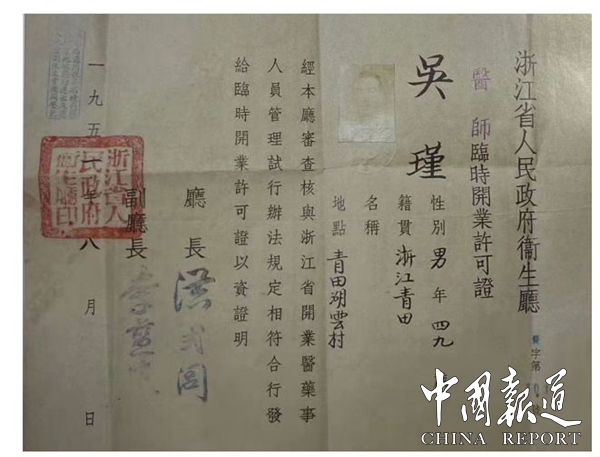 浙江省人民政府衞生廳
醫師臨時開業許可證
字第
吳瑾
性別男年四九
籍貫浙江青田
名稱
地點青田湖雲村
經本廳審查核與浙江省開業醫藥事
人員管理試行辦法規定相符合行發
給臨時開業許可證以資證明
廳長
副廳長
一九五一年八月日
浙江省人民政府衞生廳印
中國報道
CHINA REPORT